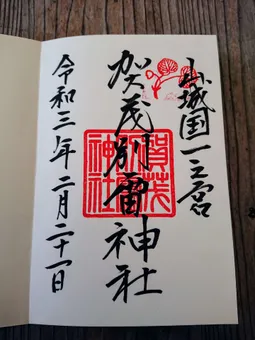 山城国一之宮
賀茂別雷神社
令和三年二月二十一日
賀茂
神社